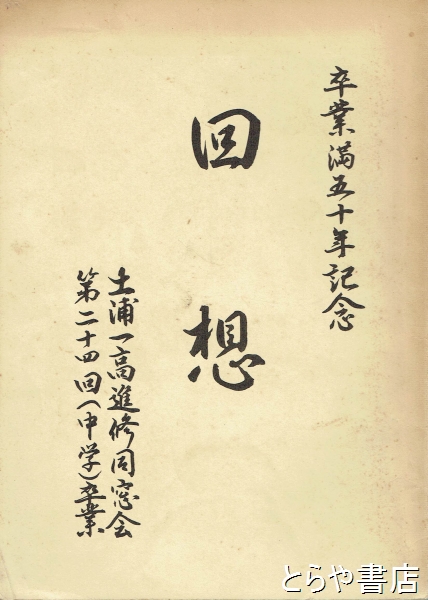 卒業満五十年記念
回想
土浦一高進修同窓会
第二十四回(中学)卒業
とらや書店